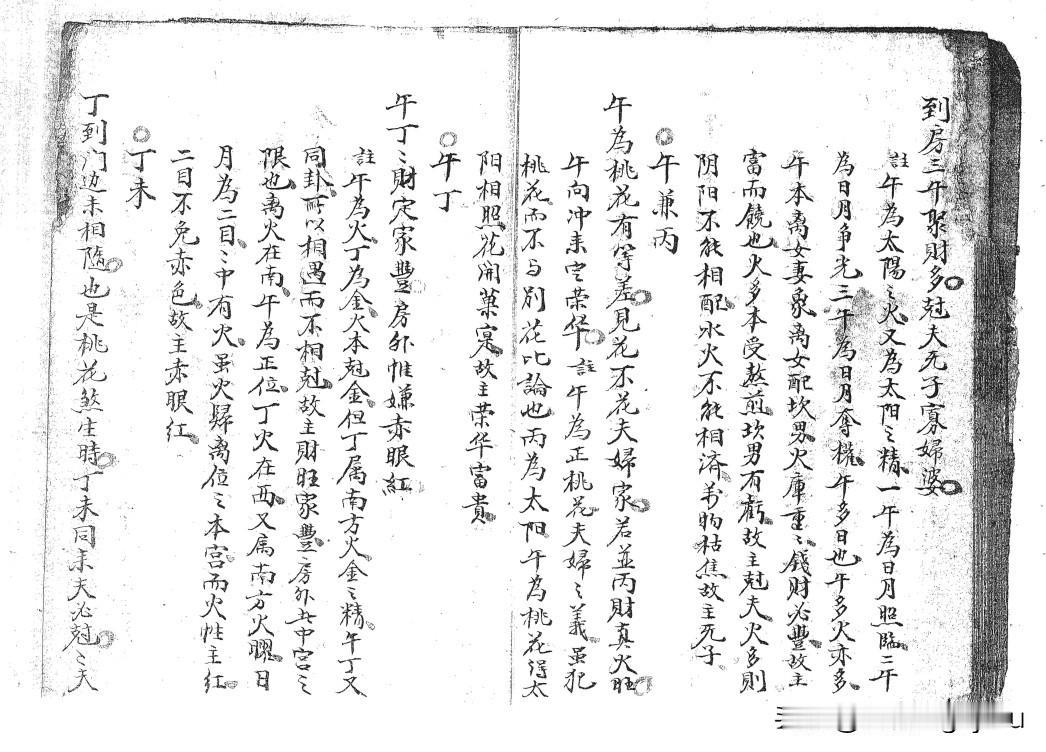 到房三午聚財多尅夫死子寡婦婆
註午為太陽之火又為太阳之精一午為日月照臨二午
為日月争光三午為日月奪權午多日也午多火亦多
午本离女妻象离女配坎男火庫重〻錢財必豐故主
富而饒也火多本受熬煎坎男有虧故主尅夫火多則
阴阳不能相配水火不能相済万物枯焦故主死子
午兼丙
午為桃花有等差見花不花夫婦家若並丙財真火旺
午向冲来定荣华註午為正桃花夫婦之義虽犯
桃花而不与别花比論也丙為太阳午為桃花得太
阳相照花開菓寔故主荣华富貴
午丁
午丁〻財定家豐房外惟嫌赤眼紅
註午為火丁為金火本尅金但丁属南方火金之精午丁又
同卦所以相遇而不相尅故主財旺家豐房外中宫之
限也离火在南午為正位丁火在西又属南方火曜日
月為二目〻中有火虽火歸离位之本宫而火性主红
二目不免赤色故主赤眼红
丁未
丁到门边未相隨也是桃花煞生時丁未同来夫必尅〻夫